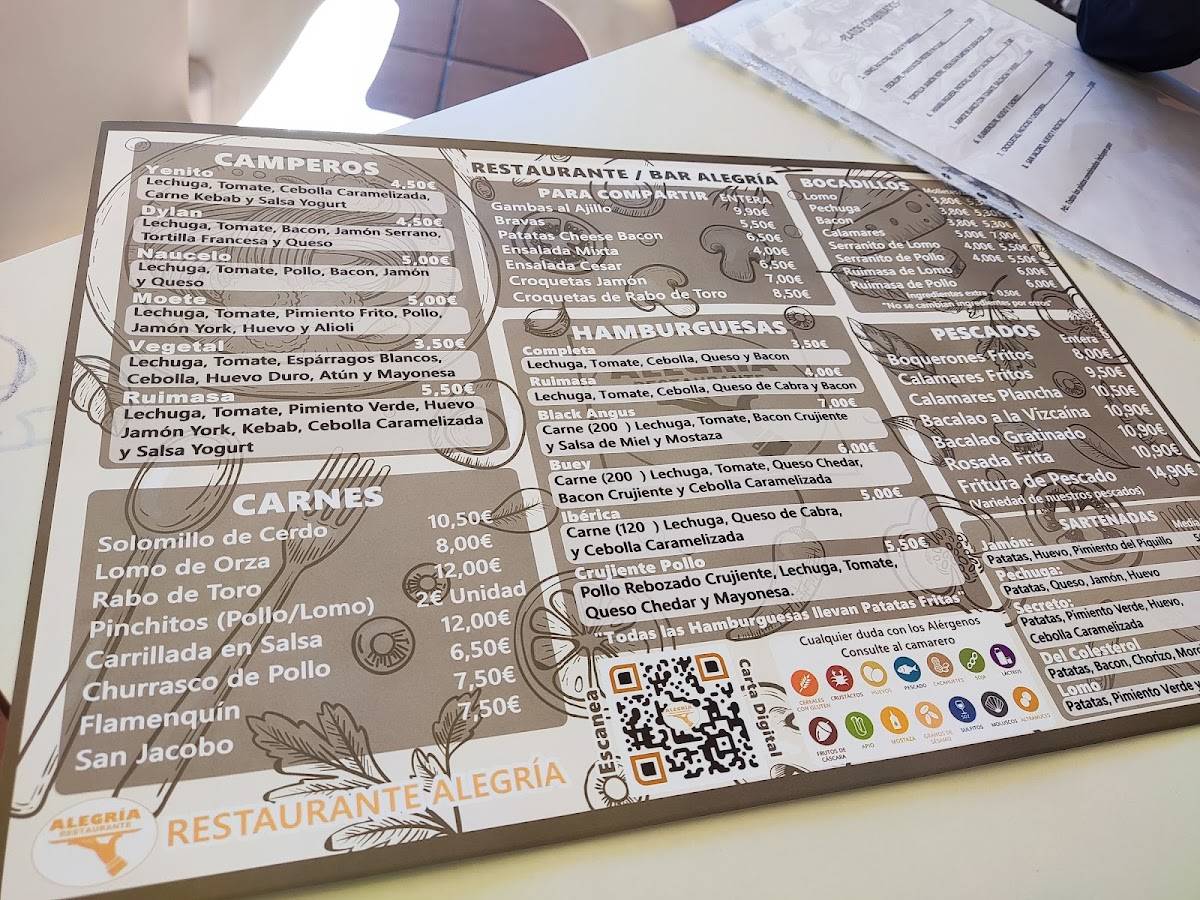 RESTAURANTE / BAR ALEGRÍA
CAMPEROS
Yenito 4,50€
Lechuga, Tomate, Cebolla Caramelizada,
Carne Kebab y Salsa Yogurt
Dylan 4,50€
Lechuga, Tomate, Bacon, Jamón Serrano,
Tortilla Francesa y Queso
Naucelo 5,00€
Lechuga, Tomate, Pollo, Bacon, Jamón
y Queso
Moete 5,00€
Lechuga, Tomate, Pimiento Frito, Pollo,
Jamón York, Huevo y Alioli
Vegetal 3,50€
Lechuga, Tomate, Espárragos Blancos,
Cebolla, Huevo Duro, Atún y Mayonesa
Ruimasa 5,50€
Lechuga, Tomate, Pimiento Verde, Huevo
Jamón York, Kebab, Cebolla Caramelizada
y Salsa Yogurt
CARNES
Solomillo de Cerdo 10,50€
Lomo de Orza 8,00€
Rabo de Toro 12,00€
Pinchitos (Pollo/Lomo) 2€ Unidad
Carrillada en Salsa 12,00€
Churrasco de Pollo 6,50€
Flamenquín 7,50€
San Jacobo 7,50€
PARA COMPARTIR ENTERA
Gambas al Ajillo 9,90€
Bravas 5,50€
Patatas Cheese Bacon 6,50€
Ensalada Mixta 4,00€
Ensalada Cesar 6,50€
Croquetas Jamón 7,00€
Croquetas de Rabo de Toro 8,50€
HAMBURGUESAS
Completa 3,50€
Lechuga, Tomate, Cebolla, Queso y Bacon
Ruimasa 4,00€
Lechuga, Tomate, Cebolla, Queso de Cabra y Bacon
Black Angus 7,00€
Carne (200 ) Lechuga, Tomate, Bacon Crujiente
y Salsa de Miel y Mostaza
Buey 6,00€
Carne (200 ) Lechuga, Tomate, Queso Chedar,
Bacon Crujiente y Cebolla Caramelizada
Ibérica 5,00€
Carne (120 ) Lechuga, Queso de Cabra,
y Cebolla Caramelizada
Crujiente Pollo 5,50€
Pollo Rebozado Crujiente, Lechuga, Tomate,
Queso Chedar y Mayonesa.
"Todas las Hamburguesas llevan Patatas Fritas"
BOCADILLOS
Lomo 3,80€ 5,30€
Pechuga 3,80€ 5,30€
Bacon 3,80€ 5,30€
Calamares 5,00€ 7,00€
Serranito de Lomo 4,00€ 5,50€
Serranito de Pollo 4,00€ 5,50€
Ruimasa de Lomo 6,00€
Ruimasa de Pollo 6,00€
Ingredientes extra + 0,50€
"No se cambian ingredientes por otros"
PESCADOS Entera
Boquerones Fritos 8,00€
Calamares Fritos 9,50€
Calamares Plancha 10,50€
Bacalao a la Vizcaína 10,90€
Bacalao Gratinado 10,90€
Rosada Frita 10,90€
Fritura de Pescado 14,90€
(Variedad de nuestros pescados)
SARTENADAS
Jamón:
Patatas, Huevo, Pimiento del Piquillo
Pechuga:
Patatas, Queso, Jamón, Huevo
Secreto:
Patatas, Pimiento Verde, Huevo,
Cebolla Caramelizada
Del Colesterol
Patatas, Bacon, Chorizo,
Lomo
Patatas, Pimiento Verde y
Cualquier duda con los Alérgenos
Consulte al camarero
CEREALES CON GLUTEN
CRUSTÁCEOS
HUEVOS
PESCADO
CACAHUETES
SOJA
LÁCTEOS
FRUTOS DE CÁSCARA
APIO
MOSTAZA
GRANOS DE SÉSAMO
SULFITOS
MOLUSCOS
ALTRAMUCES
Escanea
ALEGRÍA
Carta Digital
ALEGRÍA
RESTAURANTE
RESTAURANTE ALEGRÍA